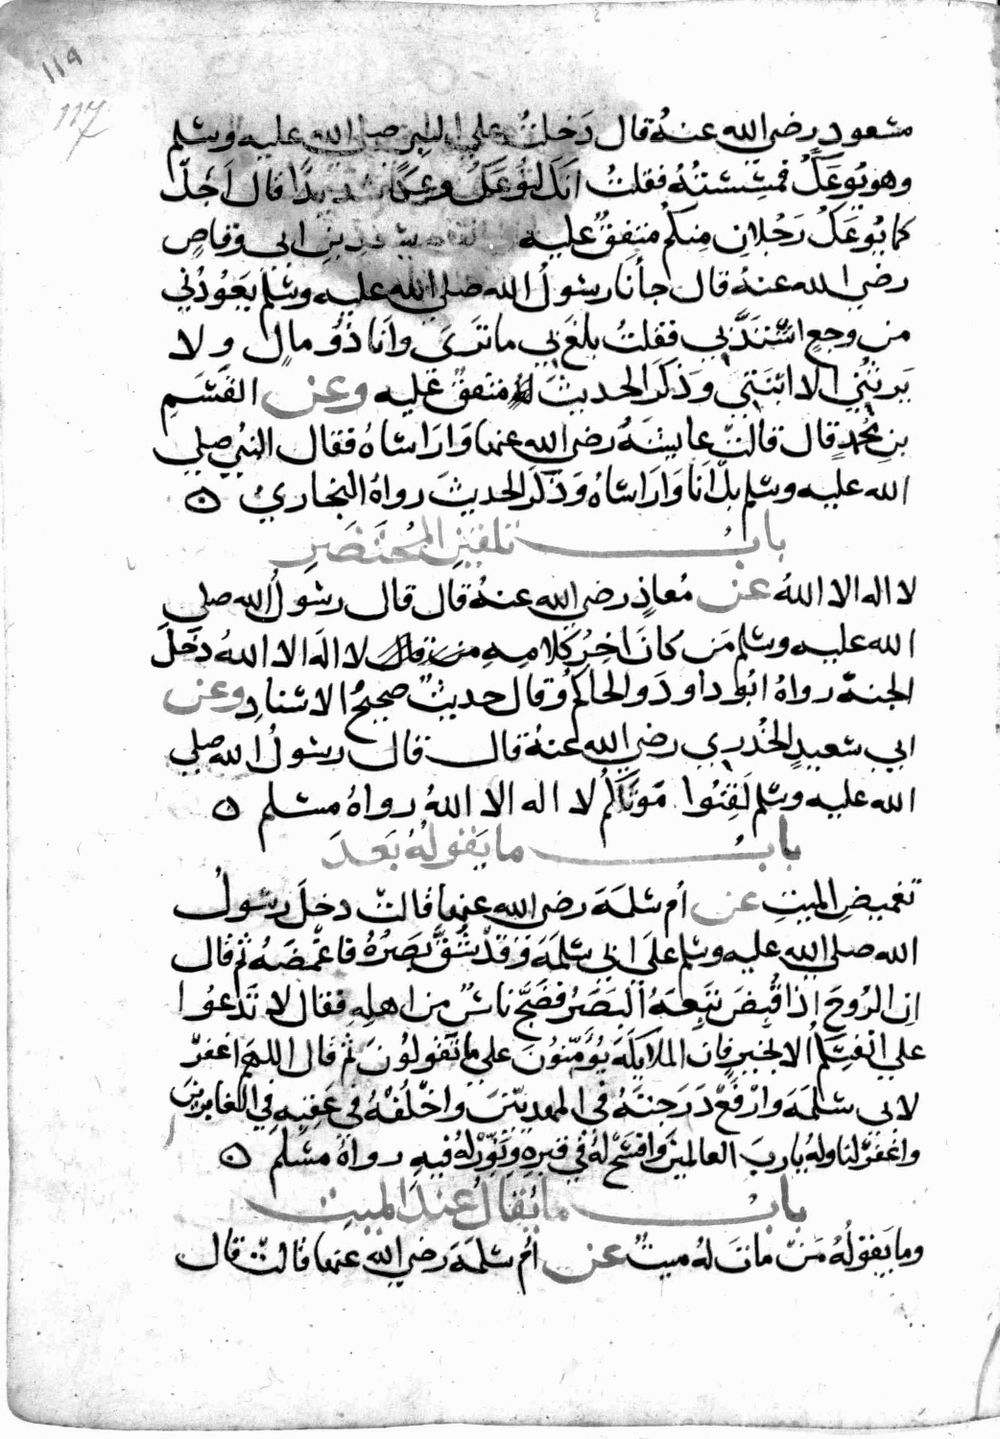 ١١٩
117
مسعود رضي الله عنهُ قال دَخلتُ علي النبي صلى الله عليه وسلم
وهو يُوعَكُ فمَسِسْتُهُ فقلتُ انكَ لتُوعَكُ وعكًا شديدًا قال اَجَلْ
كما يُوعَكُ رَجُلانِ مِنكم متفقٌ عليه وعن سعد بنِ ابي وقاصٍ
رضي الله عنهُ قال جأنا رسُولُ الله صلى الله عليه وسلم يَعُودُني
من وجعٍ اشْتَدَّ بي فقلتُ بلغَ بي ما تَرَى وَاَنا ذُو مالٍ ولا
يَرِثُني الا ابْنَتِي وَذكَرَ الحديثَ متفقٌ عليه وعن القسم
بنِ مُحمدٍ قال قالتْ عايشَةُ رضي الله عنها وَارَاسَاهُ فقال النبيُ صلي
الله عليه وسلم بلْ اَنا وَارَاسَاهُ وَذكَرَ الحديثَ رواهُ البخاريُ ۞
بابُ تلقينِ المُحْتَضَرِ
لا اله الا اللهُ عن مُعاذٍ رضي الله عنهُ قال قال رسُولُ الله صلي
الله عليه وسلم مَن كانَ اخِرُ كَلامِهِ من قال لا الَه الا اللهُ دَخلَ
الجنةَ رواهُ ابُو داودَ والحاكمُ وقال حديثٌ صحيحُ الاسنادِ وعن
ابي سَعيدٍ الخُدْري رضي الله عنهُ قال قال رسُولُ الله صلي
الله عليه وسلم لَقِنُوا مَوْتَاكُمْ لا اله الا اللهُ رواهُ مسلم ۞
بابُ ما يَقولُهُ بَعدَ
تغميضِ الميتِ عن اُم سَلمَةَ رضي الله عنها قالتْ دخلَ رسُولُ
الله صلى الله عليه وسلم علَى ابي سَلمَةَ وَقدْ شَقَّ بَصَرُهُ فاغْمَضَهُ ثم قال
ان الرُوحَ اذا قُبِضَ تَبِعَهُ البَصَرُ فضَجَّ ناسٌ من اهلِهِ فقال لا تَدْعُوا
علي انْفُسِكُمْ الا بخيرٍ فان الملايكَةَ يُؤَمّنُونَ علي ما تَقولُونَ ثم قال اللهم اغفرْ
لابي سَلمَةَ وارْفَعْ دَرَجَتَهُ في المهديّينَ واخْلُفْهُ في عَقِبِهِ في الغابرينَ
واغفرْ لنا ولهُ يا ربَ العالمينَ وافسَحْ لهُ في قبرِهِ ونَوّرْ لهُ فيهِ رواهُ مسلم ۞
بابُ ما يُقالُ عندَ الميتِ
وما يَقولُهُ مَنْ ماتَ لهُ ميتٌ عن اُم سَلمَةَ رضي الله عنها قالتْ قال